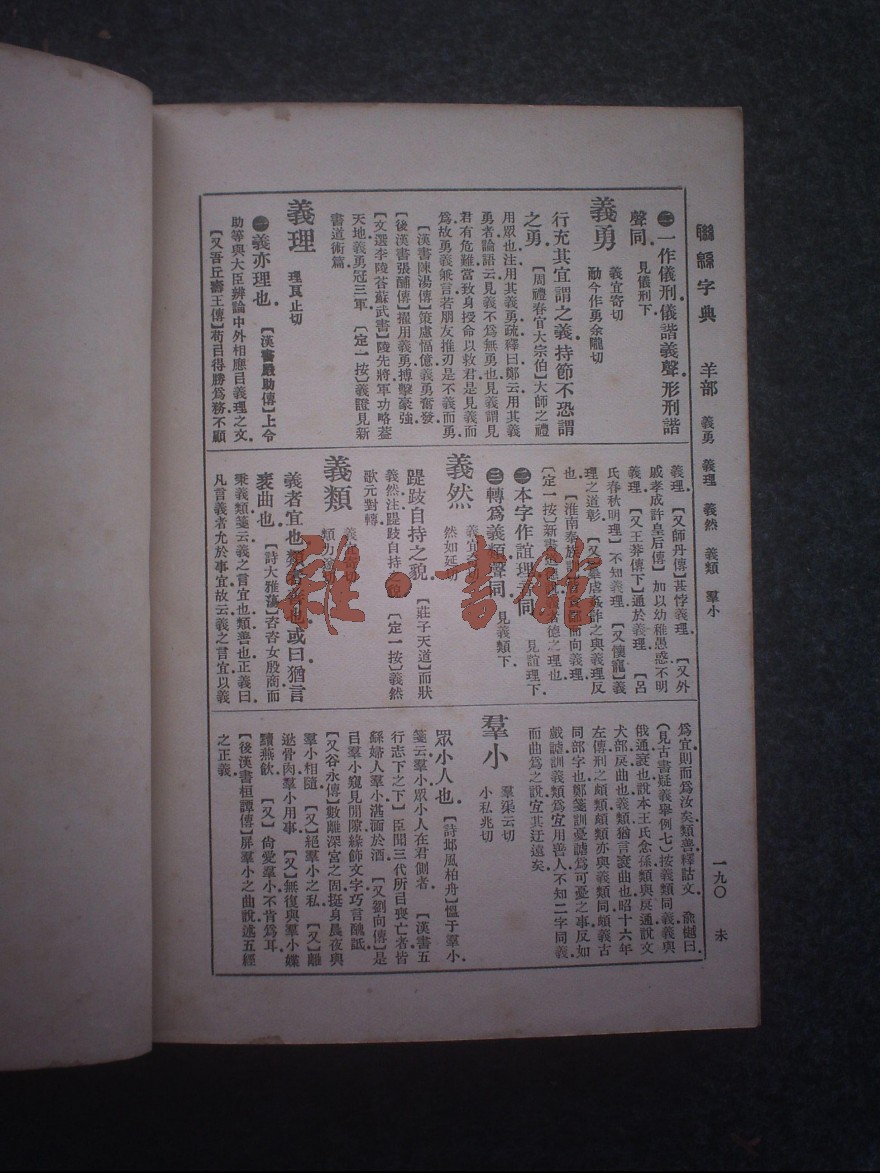 聯緜字典　羊部　義勇　義理　義然　義類　羣小
一九〇　未
㊁一作儀刑儀諧義聲形刑諧
聲同　見儀刑下
義勇
義宜寄切
勈今作勇余隴切
行充其宜謂之義持節不恐謂
之勇　【周禮春官大宗伯】大師之禮
用眾也注用其義勇疏釋曰鄭云用其義
勇者論語云見義不爲無勇也見義謂見
君有危難當致身授命以救君是見義而
爲故勇義兼言若朋友推刃是不義而勇
【漢書陳湯傳】策慮愊億義勇奮發
【後漢書張酺傳】擢用義勇搏擊豪強
【文選李陵荅蘇武書】陵先將軍功略葢
天地義勇冠三軍　【定一按】義證見新
書道術篇
義理
理良止切
㊀義亦理也　【漢書嚴助傳】上令
助等與大臣辨論中外相應㠯義理之文
【又吾丘壽王傳】茍㠯得勝爲務不顧
義理　【又師丹傳】甚悖義理　【又外
戚孝成許皇后傳】加以幼稚愚惑不明
義理　【又王莽傳下】通於義理　【呂
氏春秋明理】不知義理　【又懷寵】義
理之道彰　【又】暴虐姦詐之與義理反
也　【淮南泰族訓】
【定一按】新書
㊁本字作誼理
同　見誼理下
㊂轉爲義類聲同　見義類下
義然
義宜寄切
然如延切
踶跂自持之貌　【莊子天道】而狀
義然注踶跂自持之貌　【定一按】義然
歌元對轉
義類
義宜寄切
類力遂切
義者宜也類者善也或曰猶言
衺曲也　【詩大雅蕩】咨咨女殷商而
秉義類箋云義之言宜也類善也正義曰
凡言義者允於事宜故云義之言宜以義
爲宜則而爲汝矣類善釋詁文　俞樾曰
（見古書疑義舉例七）按義類同義義與
俄通衺也說本王氏念孫類與戾通說文
犬部戾曲也義類猶言衺曲也昭十六年
左傳刑之頗類頗類亦與義類同頗義古
同部字也鄭箋訓憂謔爲可憂之事反如
戲謔訓義類爲宜用善人不知二字同義
而曲爲之說宜其迂遠矣
羣小
羣渠云切
小私兆切
眾小人也　【詩邶風柏舟】慍于羣小
箋云羣小眾小人在君側者　【漢書五
行志下之下】臣聞三代所㠯喪亡者皆
繇婦人羣小湛湎於酒　【又劉向傳】是
㠯羣小窺見閒隙緣飾文字巧言醜詆
【又谷永傳】數離深宮之固挺身晨夜與
羣小相隨　【又】絕羣小之私　【又】離
逖骨肉羣小用事　【又】無復與羣小媟
黷燕飲　【又】尙愛羣小不肯爲耳
【後漢書桓譚傳】屏羣小之曲說述五經
之正義
雜·書館